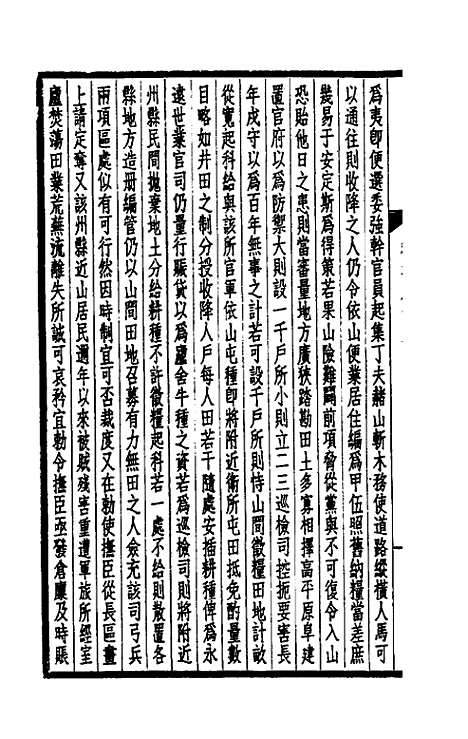 爲夷卽便選委強幹官員起集丁夫赭山斬木務使道路縱橫人馬可
以通往則收降之人仍令依山便業居住編爲甲伍照舊納糧當差庶
幾易于安定斯爲得策若果山險難闢前項脅從黨與不可復令入山
恐貽他日之患則當審量地方廣狹踏勘田土多寡相擇高平原阜建
置官府以爲防禦大則設一千戶所小則立二三巡檢司控扼要害長
年戍守以爲百年無事之計若可設千戶所則恃山間徵糧田地計畝
從寬起科給與該所官軍依山屯種卽將附近衞所屯田抵免酌量數
目略如井田之制分授收降人戶每人田若干隨處安插耕種俾爲永
遠世業官司仍量行賑貸以爲廬舍牛種之資若爲巡檢司則將附近
州縣民間拋棄地土分給耕種不許徵糧起科若一處不給則散置各
縣地方造册編管仍以山間田地召募有力無田之人僉充該司弓兵
兩項區處似有可行然因時制宜可否裁度又在勅使撫臣從長區畫
上請定奪又該州縣近山居民邇年以來被賊殘害重遭軍旅所經室
廬焚蕩田業荒蕪流離失所誠可哀矜宜勅令撫臣亟發倉廩及時賑